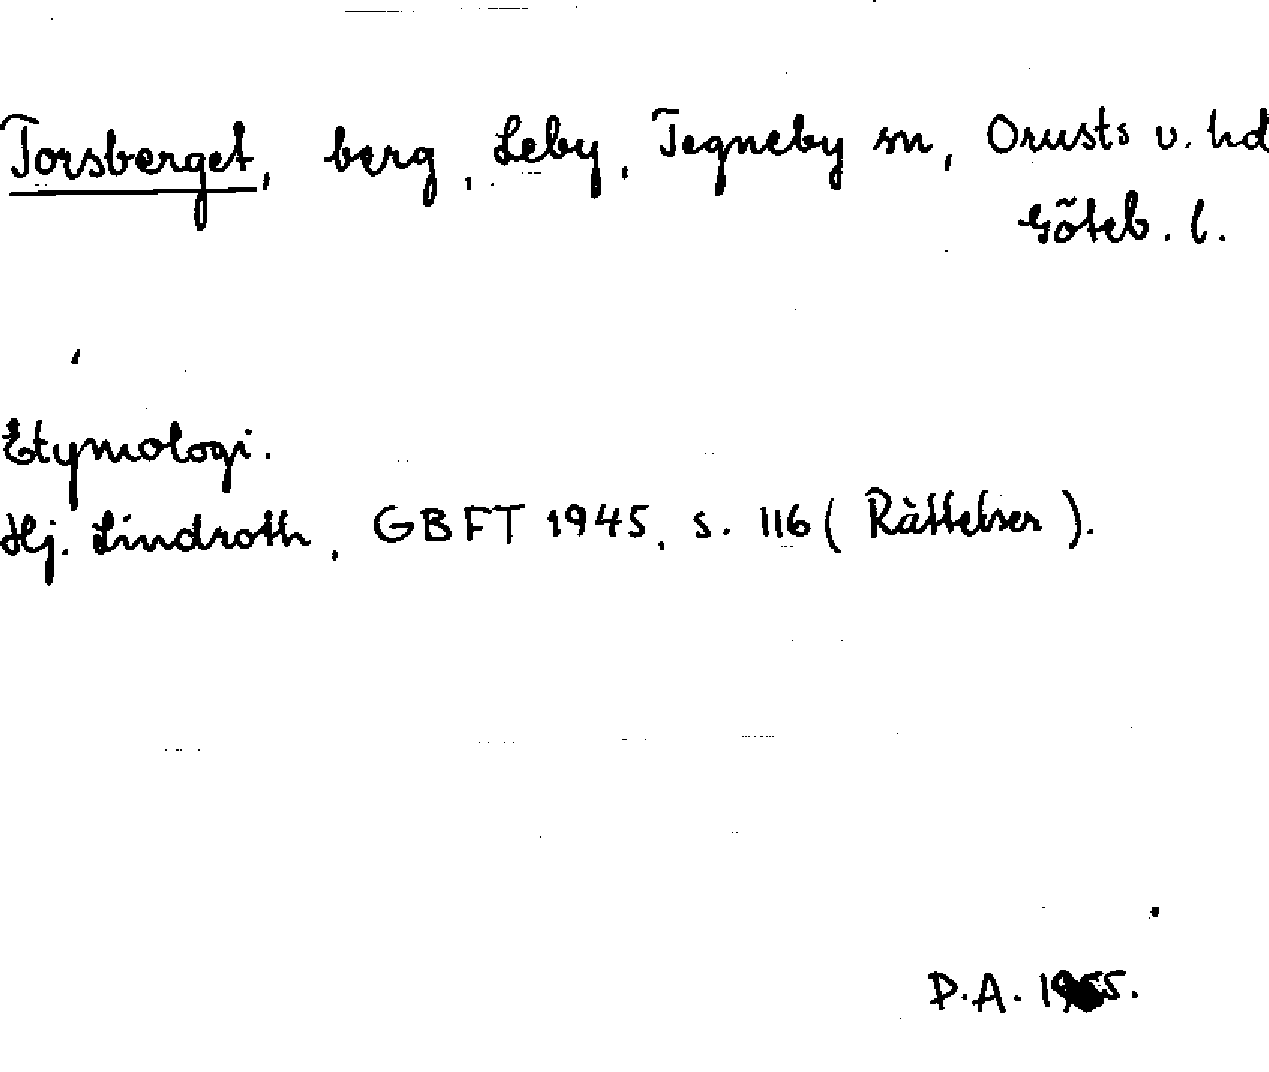 Torsberget, berg, Leby, Tegneby sn, Orusts v. hd
Göteb. l.
Etymologi.
Hj. Lindroth, GBFT 1945, s. 116 (Rättelser).
D.A. 1955.